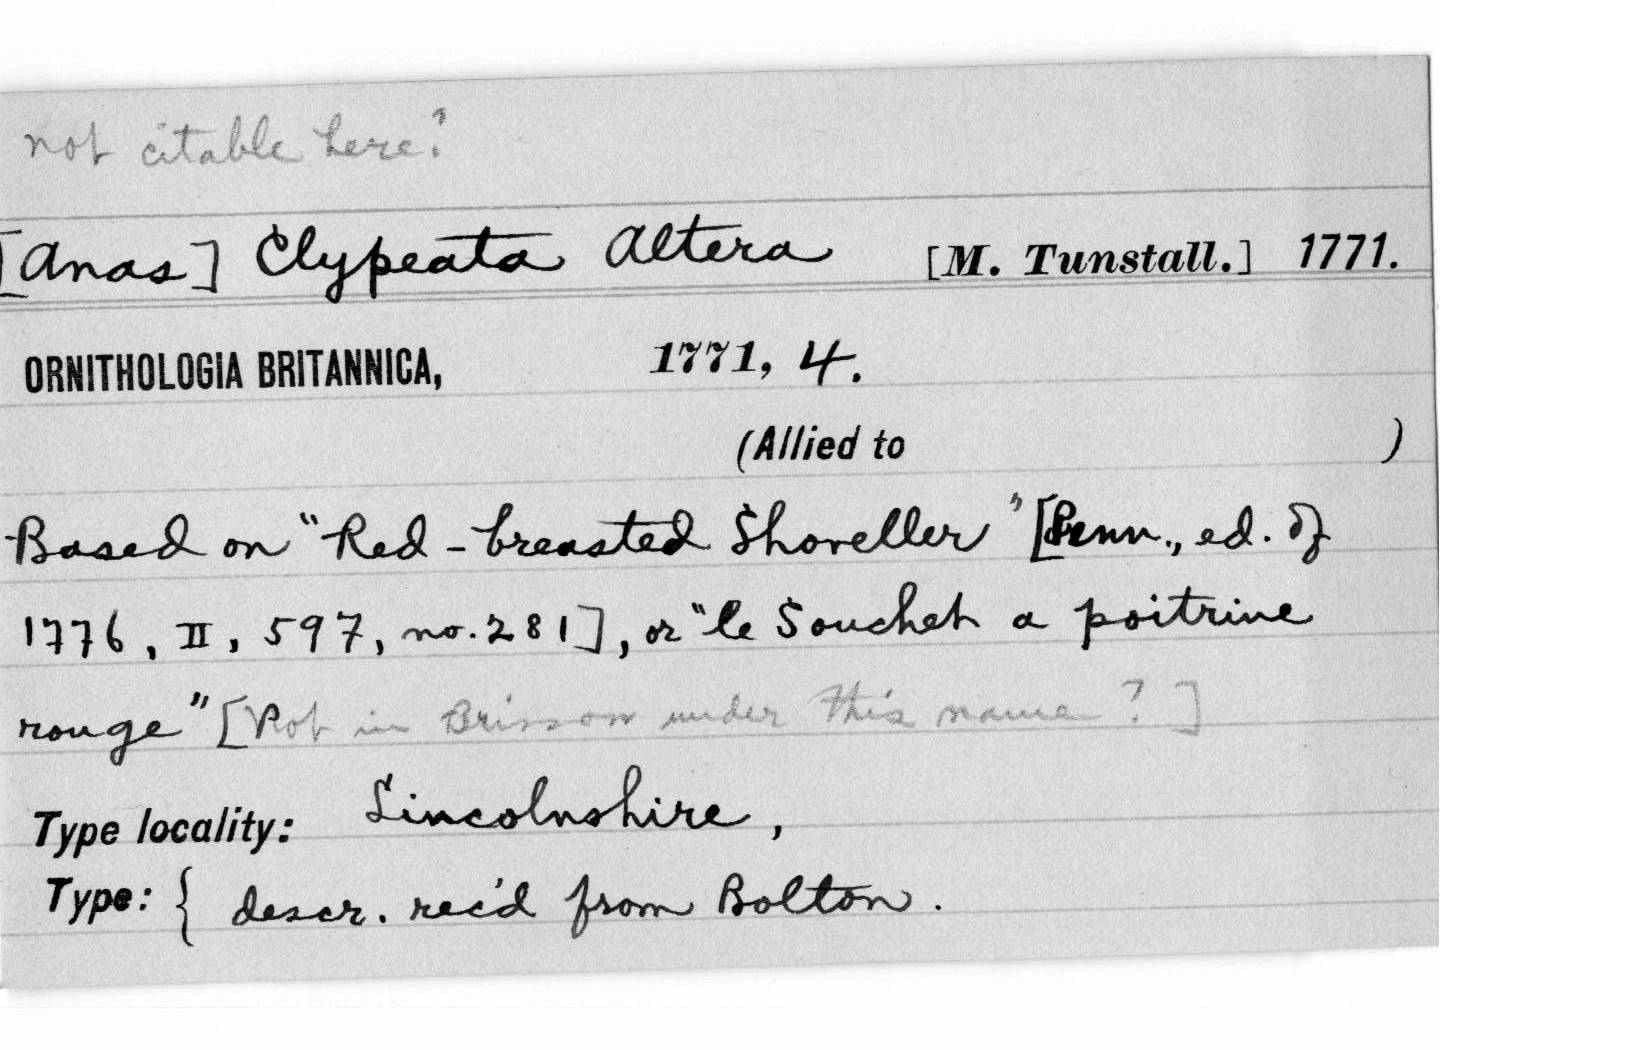 not citable here?
[Anas] Clypeata Altera [M. Tunstall.] 1771.
ORNITHOLOGIA BRITANNICA, 1771, 4.
(Allied to )
Based on "Red-breasted Shoveller" [Penn., ed. of
1776, II, 597, no. 281], or "le Souchet a poitrine
rouge" [Not in Brisson under this name?]
Type locality: Lincolnshire,
Type: { descr. rec'd from Bolton.